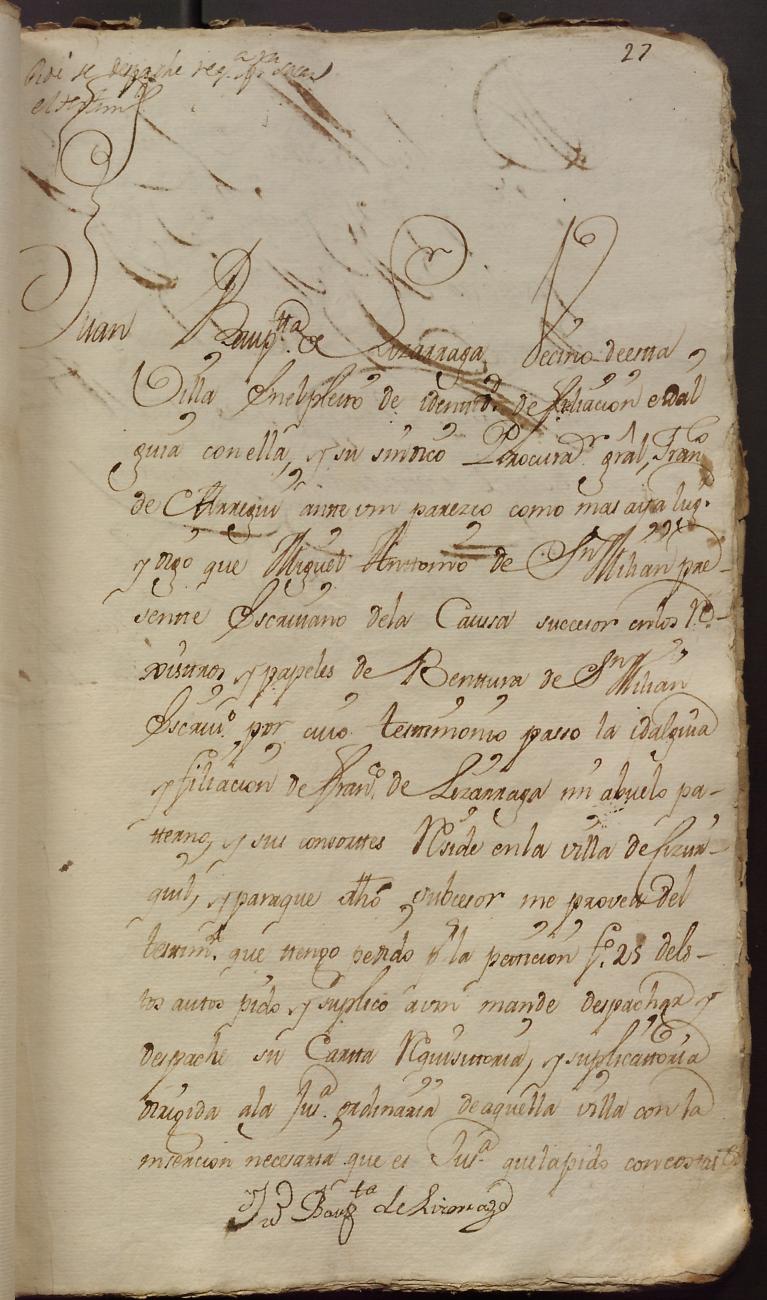 27
Pide se despache req.a para sacar
el testim.o
Juan Baup.tta de Lizarraga Vecino de esta
Villa En el pleito de identid.d de filiacion e dal
guia con ella, y su sindico Procurad.r gral, Fran.co
de Echarrigui ante vm parezco como mas aia lug.r
y digo que Miguel Anttonio de S.n Milian pre-
sente Escrivano de la Caussa succesor en los Re-
xisttros y papeles de Benttura de S.n Milian
Escriv.o por cuio testimonio passo la idalguia
y filiacion de Fran.co de Lizarraga mi abuelo pa-
tterno, y sus consorttes Reside en la villa de Zizur-
quil, y para que dho subcesor me provea del
testim.o que ttengo pedido en la peticion f.o 25 de es-
tos autos pido, y suplico a vm mande despachar y
despache su Cartta Requisittoria, y suplicattoria
dirigida a la Jus.a ordinaria de aquella villa con la
insercion necesaria que es Jus.a que la pido con costas &
Ju.o Baup.ta de Lizarraga